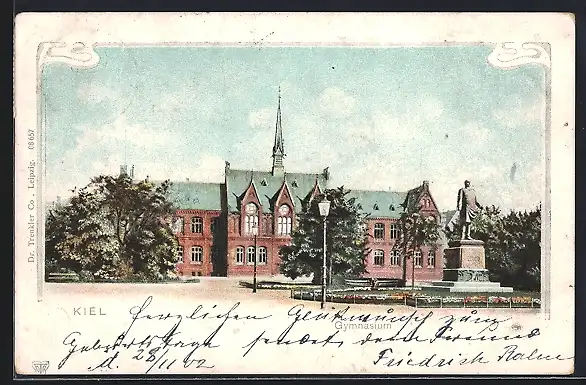 Dr. Trenkler Co., Leipzig. 08657
KIEL
Gymnasium
Herzlichen Glückwunsch zum
Geburtstage sendet dein Freund
M. 28/11 02 Friedrich